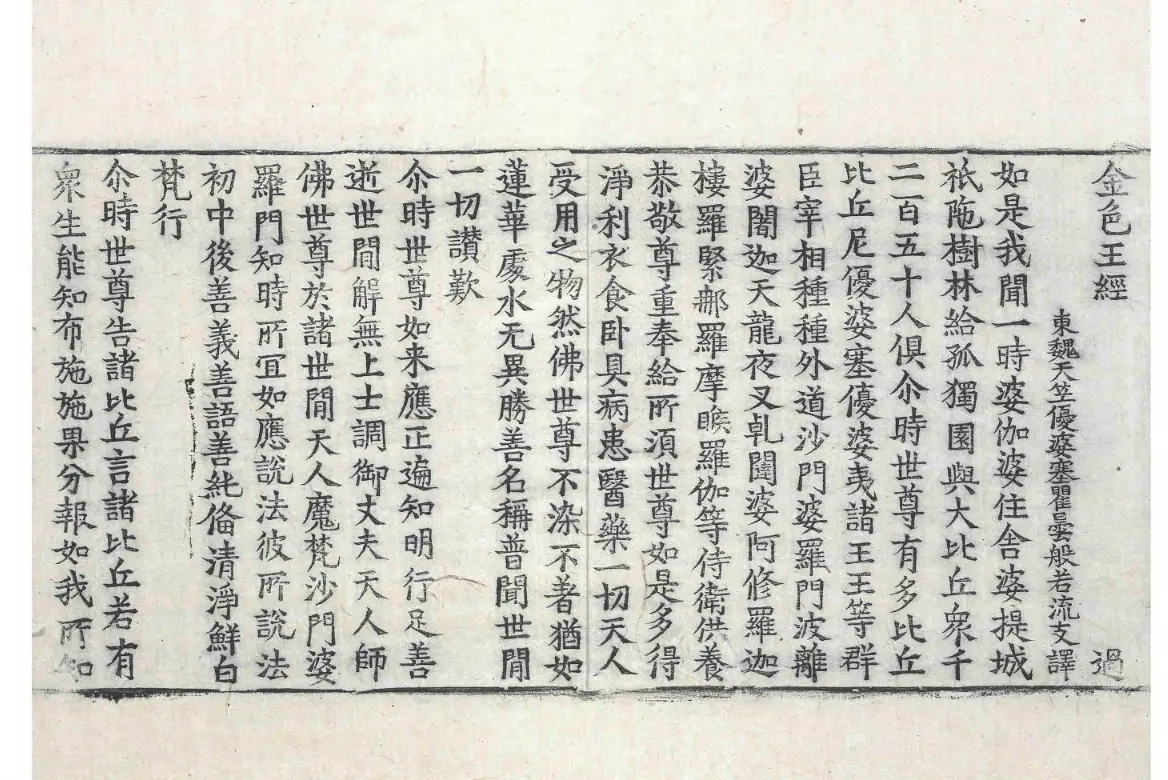 金色王經 過
東魏天竺優婆塞瞿曇般若流支譯
如是我聞一時婆伽婆住舍婆提城
祇陁樹林給孤獨園與大比丘衆千
二百五十人俱尒時世尊有多比丘
比丘尼優婆塞優婆夷諸王王等群
臣宰相種種外道沙門婆羅門波離
婆闍迦天龍夜叉乹闥婆阿修羅迦
樓羅緊那羅摩睺羅伽等侍衛供養
恭敬尊重奉給所須世尊如是多得
淨利衣食卧具病患醫藥一切天人
受用之物然佛世尊不染不著猶如
蓮華處水无異勝善名稱普聞世間
一切讃歎
尒時世尊如来應正遍知明行足善
逝世間解無上士調御丈夫天人師
佛世尊於諸世間天人魔梵沙門婆
羅門知時所冝如應說法彼所說法
初中後善義善語善純俻清淨鮮白
梵行
尒時世尊告諸比丘言諸比丘若有
衆生能知布施施果分報如我所知